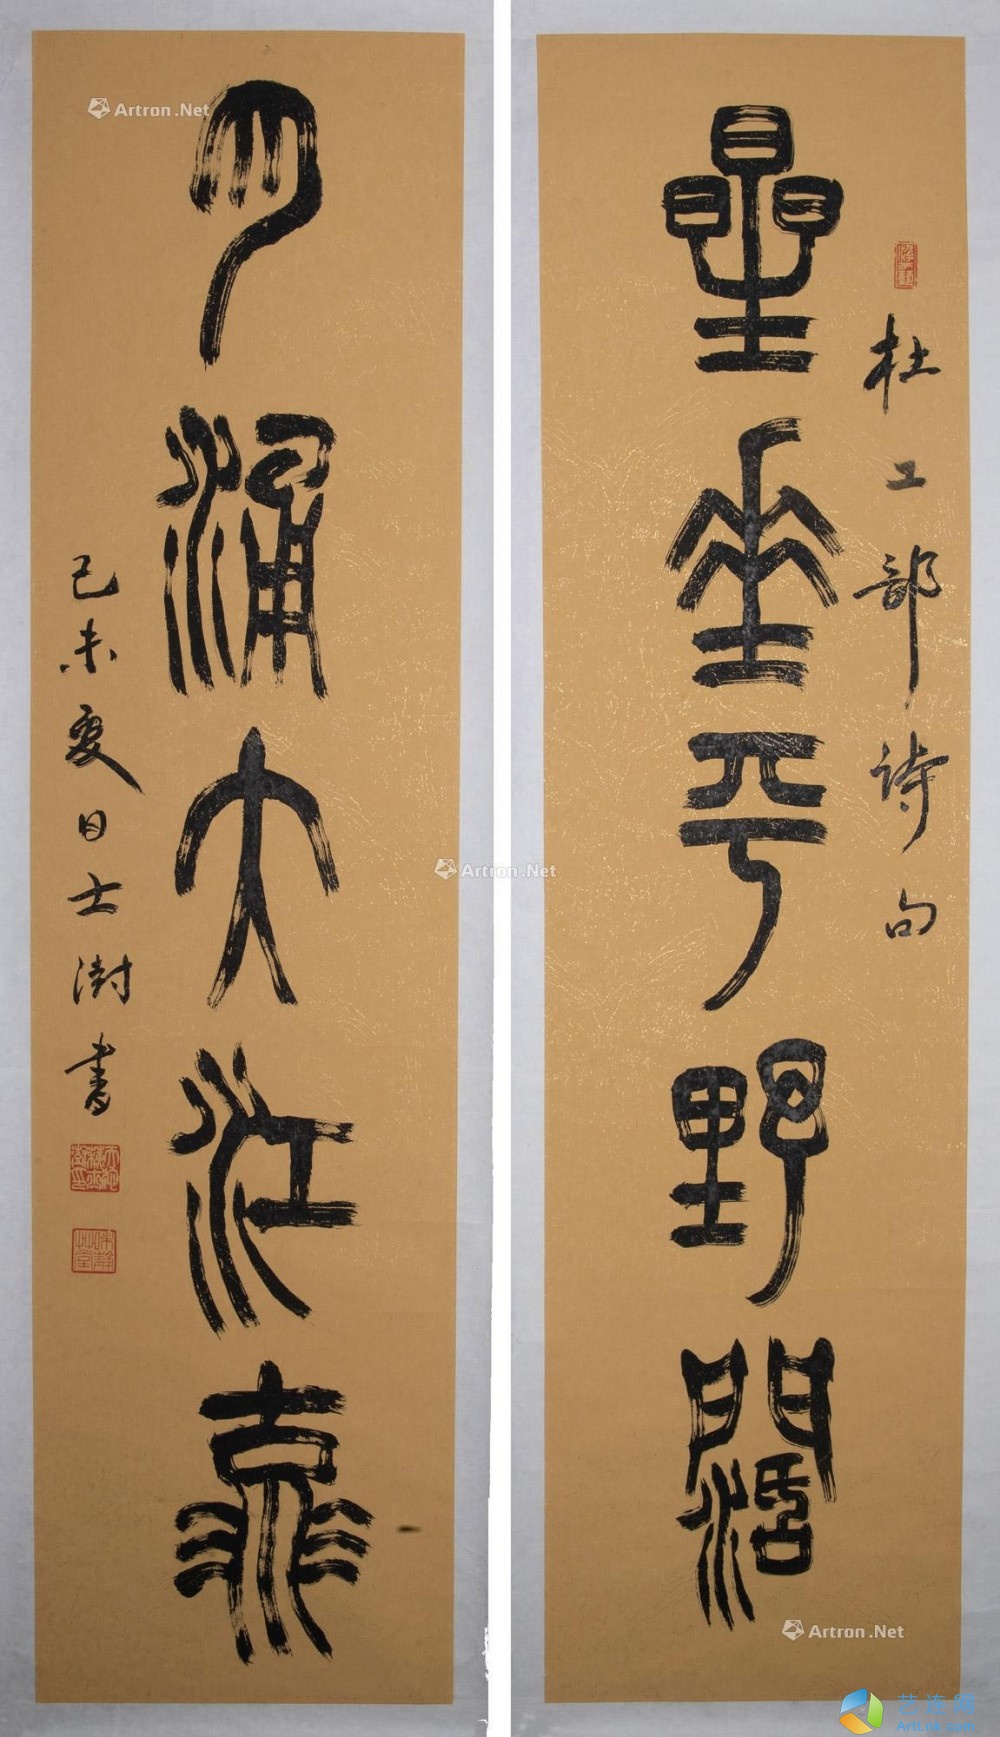 杜工部詩句
星垂平野闊
月涌大江流
己未夏日士澍書
Artron.Net
Artron.Net
Artron.Net
艺连网
ArtLnk.com